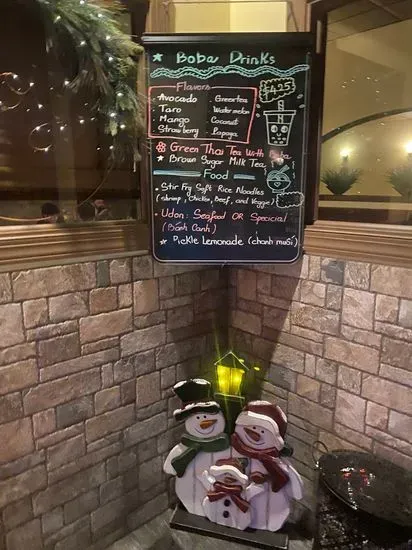 ★ Boba Drinks
$4.25
Flavors
- Avocado - Greentea
- Taro Watermelon
- Mango Coconut
- Strawberry - Papaya
Green Thai Tea With Boba
★ Brown Sugar Milk Tea
Food
★ Stir Fry Soft Rice Noodles
(shrimp, Chicken, Beef, and Veggie)
Udon: Seafood OR Specicial
(Bánh Canh)
★ Pickle Lemonade (chanh muối)